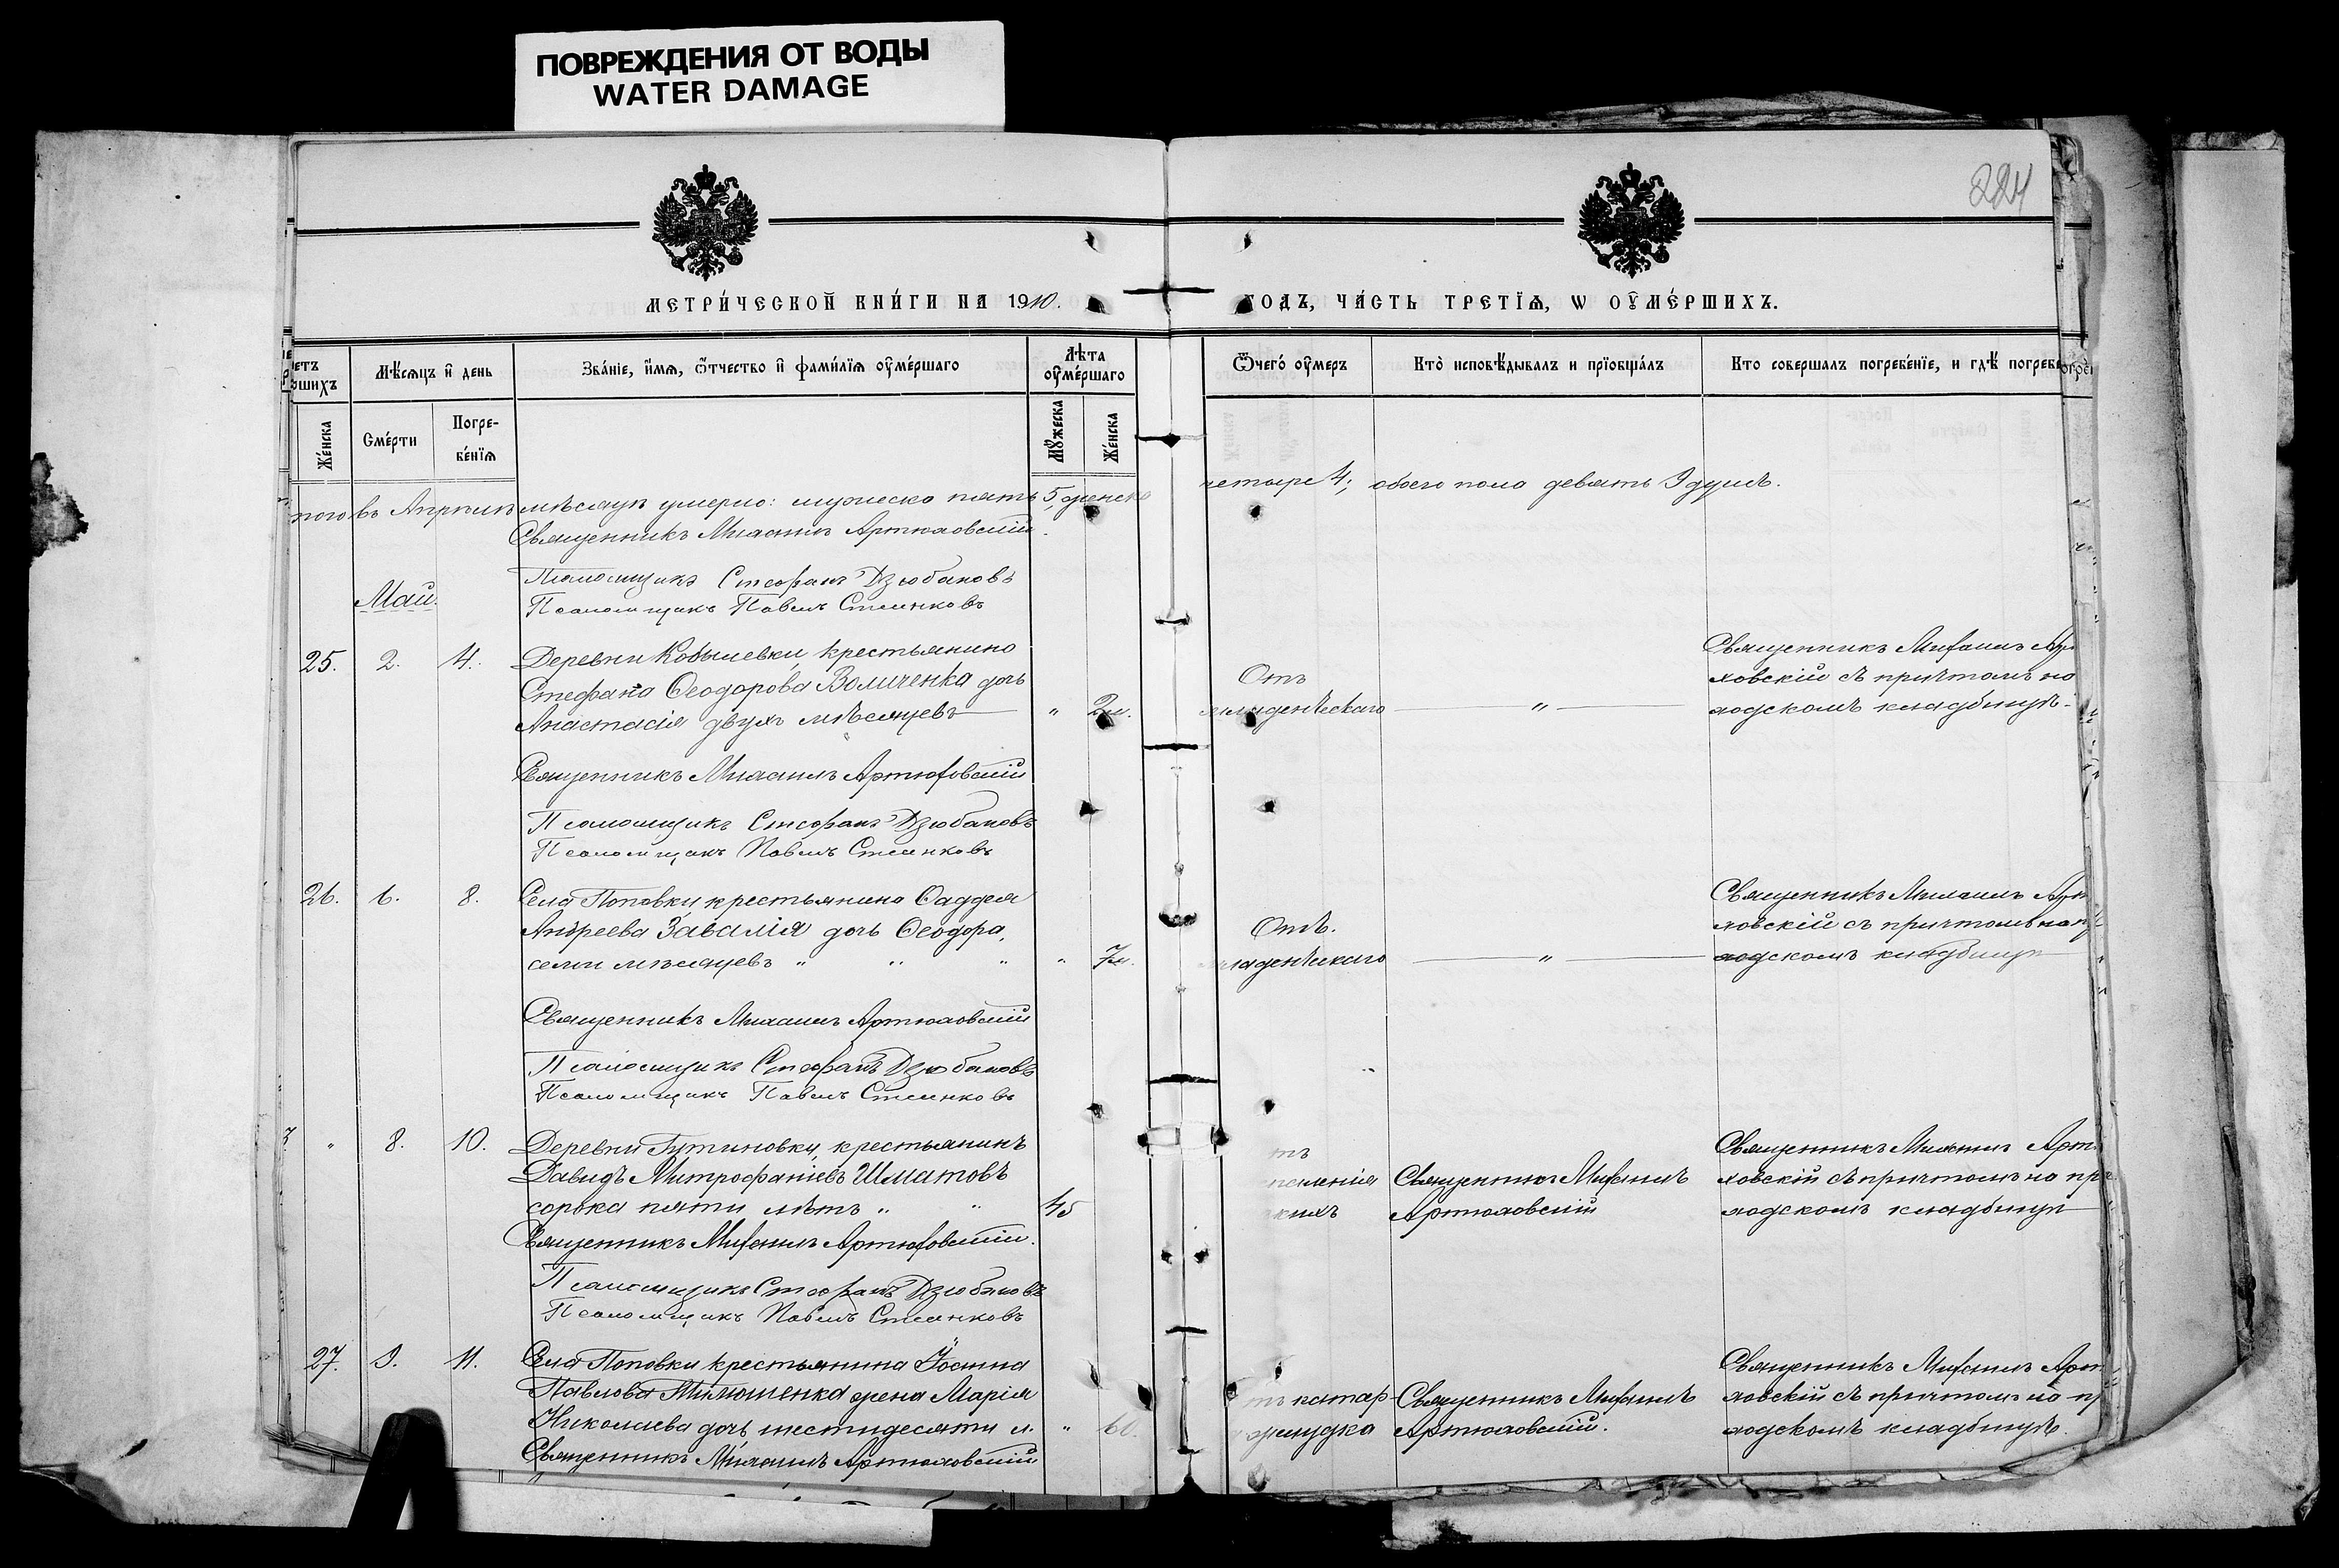 ПОВРЕЖДЕНИЯ ОТ ВОДЫ
WATER DAMAGE
224
МЕТРИ́ЧЕСКОЙ КНИ́ГИ НА 1910.
ГОДЪ, ЧА́СТЬ ТРЕТЇѦ, Ѡ ОУ҆МЕ́РШИХЪ.
етъ
ршихъ
Мѣ́сяцъ и҆ день
Зва́нїе, и҆́мя, ѻ҆́тчество и҆ фами́лїя оу҆ме́ршаго
Лѣта
оу҆ме́ршаго
Ѿчегѡ́ оу҆меръ
Кто̀ исповѣ́дывалъ и прїобща́лъ
Кто совершалъ погребе́нїе, и гдѣ̀ погребе
Же́нска
Сме́рти
Погре-
бе́нїя
Мꙋ́жеска
Же́нска
того въ Апрѣлѣ мѣсяцѣ умерло: мужеска пять 5, женска
четыре 4; обоего пола девять 9 душъ.
Священникъ Михаилъ Артюховскій.
Псаломщикъ Стефанъ Дзюбановъ
Май.
Псаломщикъ Павелъ
25. 2. 4. Деревни Кобылевки, крестьянина
Стефана Ѳеодорова Воличенка дочь
Анастасія двухъ мѣсяцевъ " 2м.
Отъ
младенческаго "
Священникъ Михаилъ Арт
ховскій съ причтомъ на
ходскомъ кладбищѣ.
Священникъ Михаилъ Артюховскій
Псаломщикъ Стефанъ Дзюбановъ
Псаломщикъ Павелъ
26. 6. 8. Села Поповки крестьянина Фаддея
Андреева Завалія дочь Ѳеодора,
семи мѣсяцевъ " " " " 7м.
Отъ.
младенческаго "
Священникъ Михаилъ Арт
ховскій съ причтомъ на п
ходскомъ кладбищѣ
Священникъ Михаилъ Артюховскій
Псаломщикъ Стефанъ Дзюбановъ
Псаломщикъ Павелъ
" 8. 10. Деревни Гутиновки, крестьянинъ
Давидъ Митрофаніевъ Шматовъ
сорока пяти лѣтъ " " 45
тъ
паленія
кихъ
Священникъ Михаилъ
Артюховскій
Священникъ Михаилъ Арт
ховскій съ причтомъ на пр
ходскомъ кладбищѣ
Священникъ Михаилъ Артюховскій.
Псаломщикъ Стефанъ Дзюбановъ
Псаломщикъ Павелъ
27. 9. 11. Села Поповки крестьянина Іоанна
Павлова жена Марія
Николаева дочь шестидесяти л. " 60.
тъ катар
желудка
Священникъ Михаилъ
Артюховскій.
Священникъ Михаилъ Арт
ховскій съ причтомъ на пр
ходскомъ кладбищѣ.
Священникъ Михаилъ Артюховскій